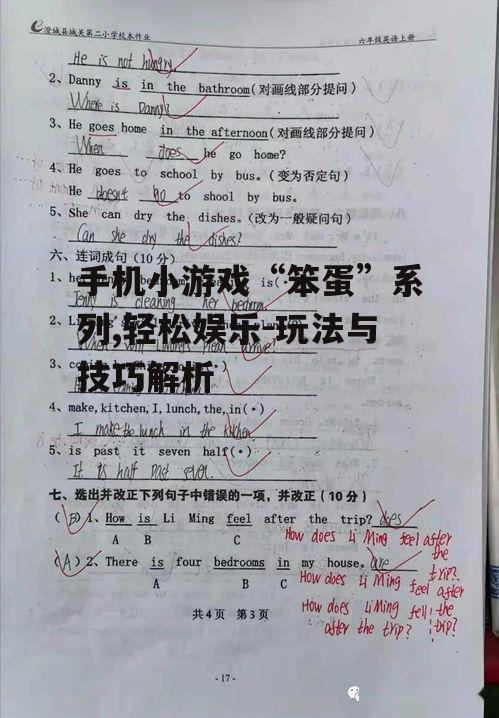 澄城县城关第二小学校本作业 六年级英语上册
He is not hungry
2、Danny is in the bathroom(对画线部分提问)
Where is Danny?
3、He goes home in the afternoon(对画线部分提问)
When does he go home?
4、He goes to school by bus。(变为否定句)
He doesn't go to shool by bus.
5、She can dry the dishes。(改为一般疑问句)
Can she dry the dishes?
六、连词成句(10分)
手机小游戏“笨蛋”系
Jenny is cleaning her bedroom
列,轻松娱乐-玩法与
技巧解析
4、make,kitchen,I,lunch,the,in(·)
I make the lunch in the kitchen
5、is past it seven half(·)
It is half past seven.
七、选出并改正下列句子中错误的一项,并改正(10分)
(B)1、How is Li Ming feel after the trip? does
A B C
How does Li Ming feel after the trip?
(A)2、There is four bedrooms in my house。are
A B C
How does Li Ming feel after
How does Li Ming fell the
after the trip? trip?
共4页 第3页
-17-